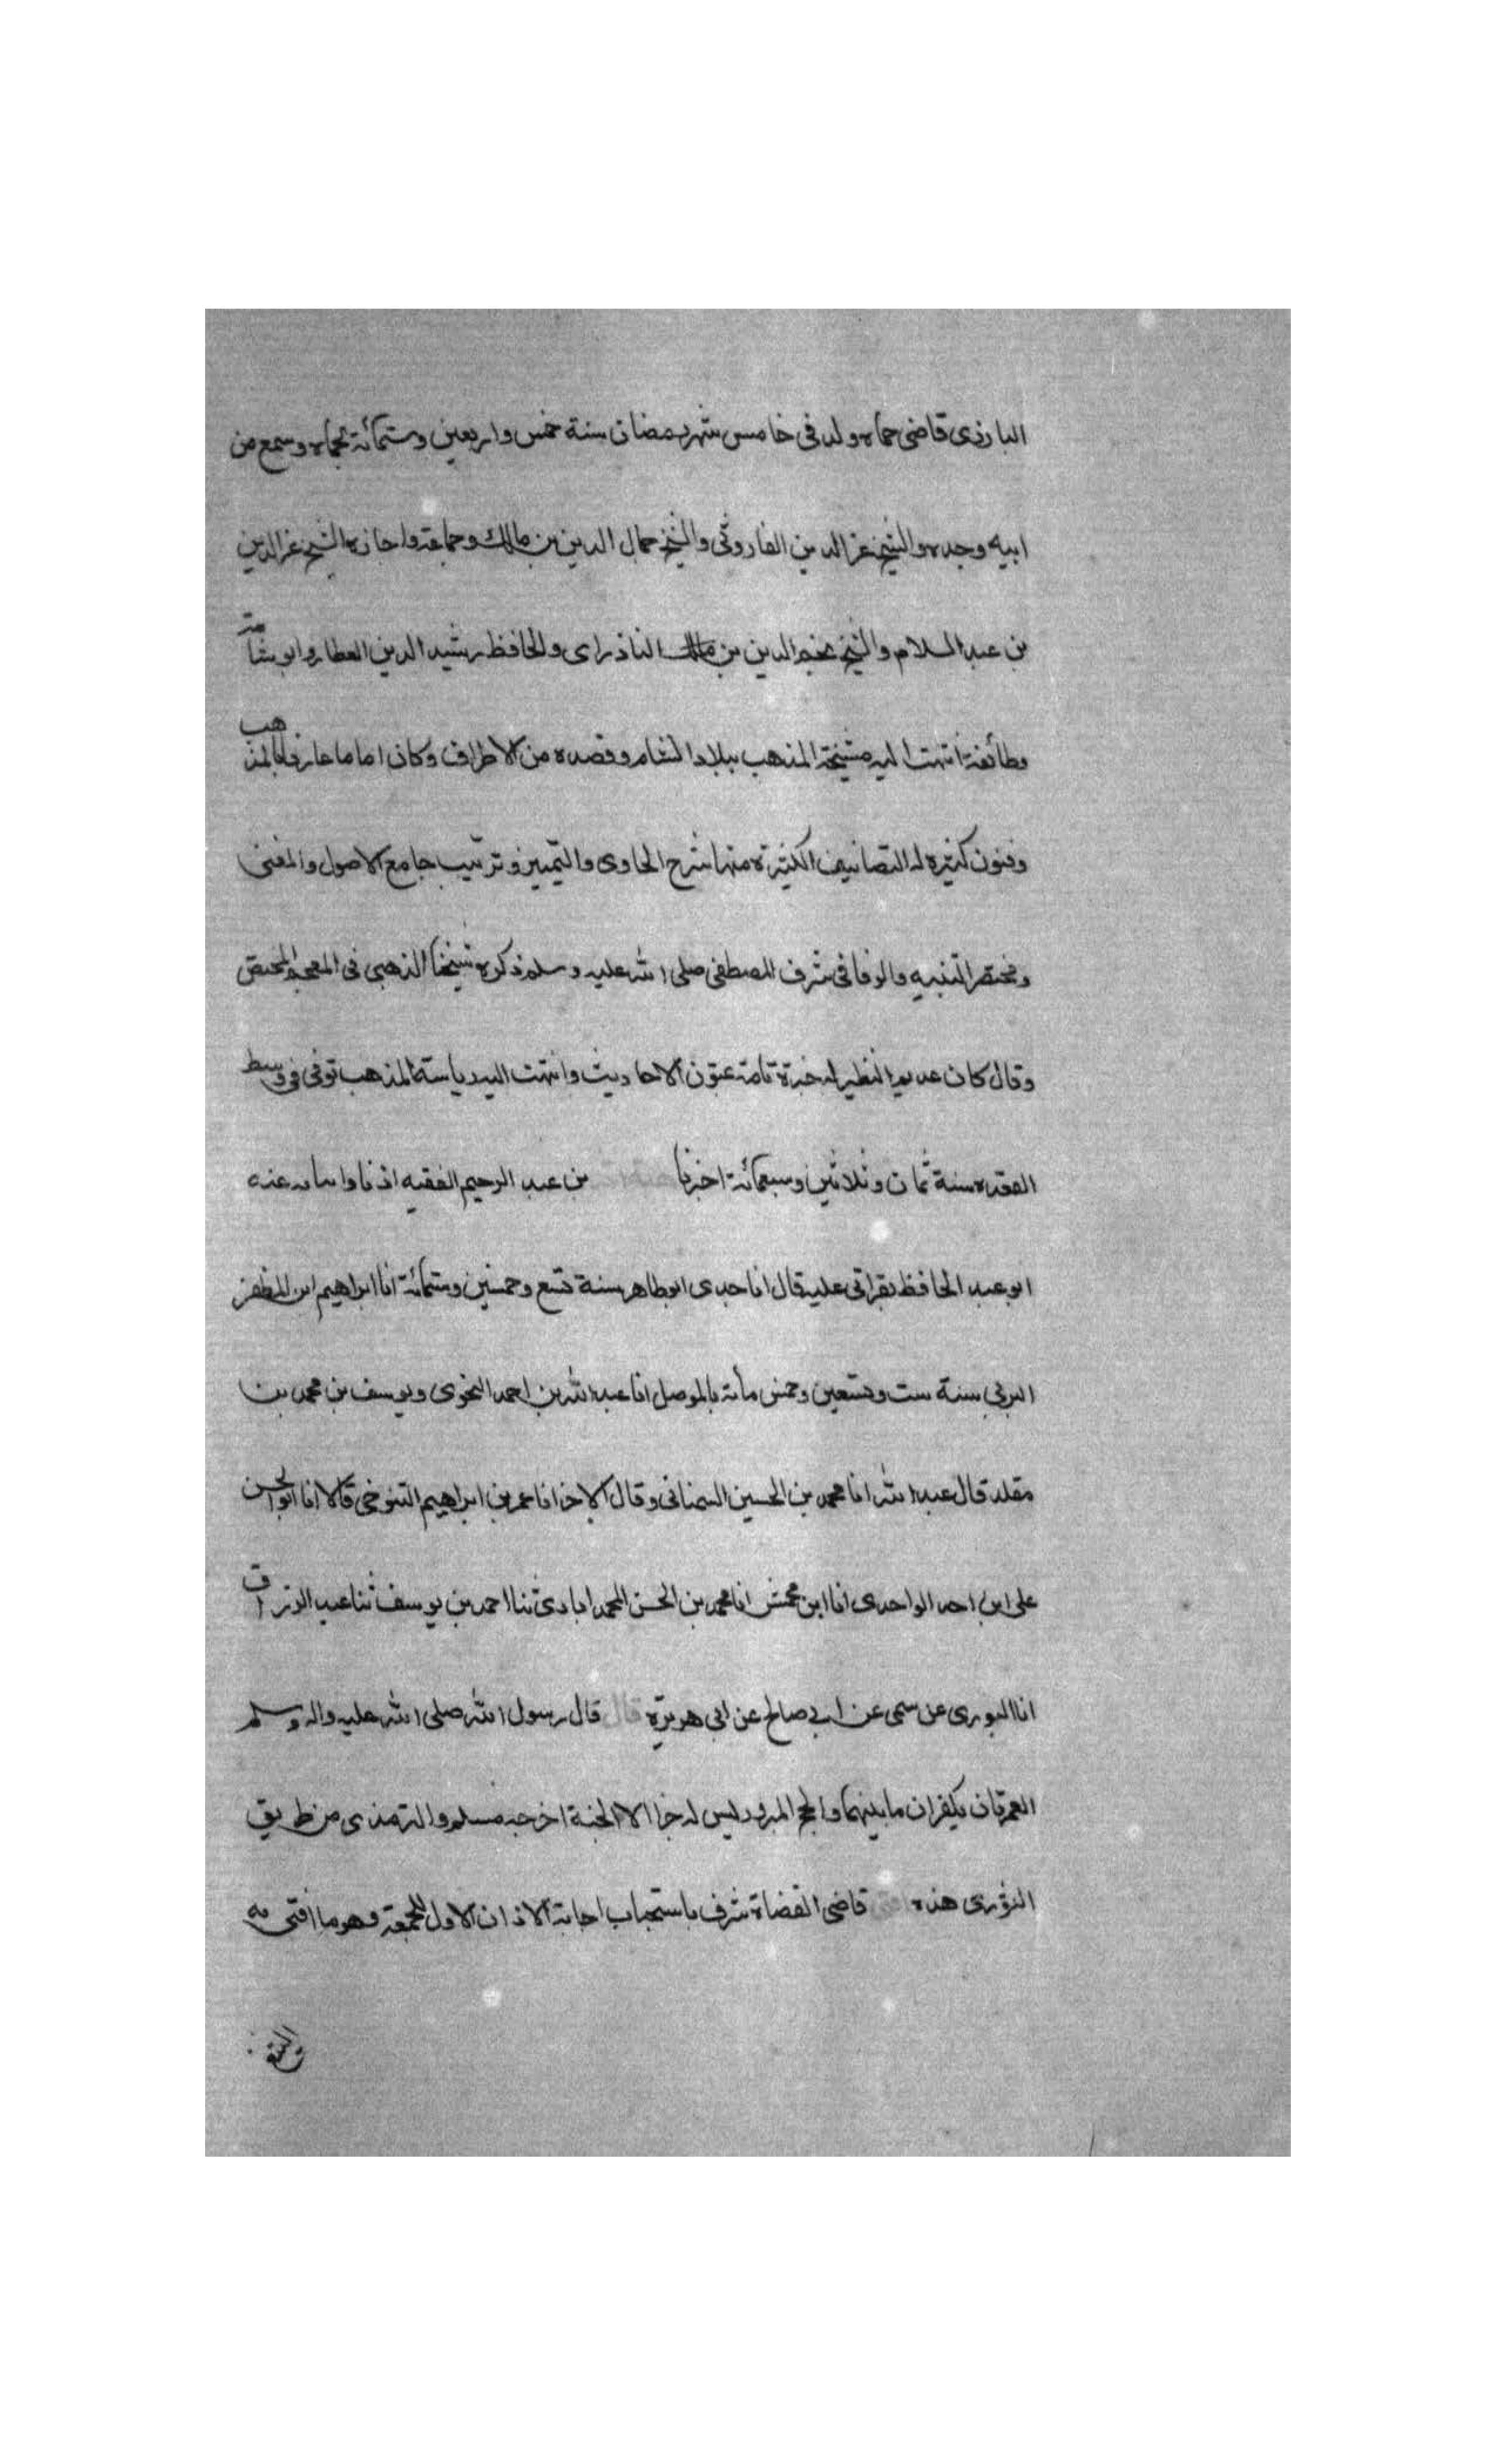 البارزى قاضى حماه ولد فى خامس شهر رمضان سنة خمس واربعين وستمائة بحماه وسمع من
ابيه وجده والشيخ عز الدين الفاروثى والشيخ جمال الدين بن مالك وجماعة واجازه الشيخ عز الدين
بن عبد السلام والشيخ نجم الدين بن مالك الناذراى والحافظ رشيد الدين العطار وابو شامة
وطائفة انتهت اليه مشيخة المذهب ببلاد الشام وقصده من الاطراف وكان اماما عارفا بالمذهب
وفنون كثيره له التصانيف الكثيرة منها شرح الحاوى والتمييز وترتيب جامع الاصول والمغنى
ومختصر التنبيه والوفا فى شرف المصطفى صلى الله عليه وسلم ذكره شيخنا الذهبى فى المعجم المختص
وقال كان عديم النظير له خبرة تامة بمتون الاحاديث وانتهت اليه رياسة المذهب توفى فى وسط
القعده سنة ثمان وثلاثين وسبعمائة اخبرنا بن عبد الرحيم الفقيه اذنا وانبانا عنه
ابو عبد الحافظ بقراتى عليه قال انا جدى ابو طاهر سنة تسع وخمسين وستمائة انا ابراهيم ابن المظفر
البرنى سنة ست وتسعين وخمس مائة بالموصل انا عبد الله بن احمد النحوى ويوسف بن محمد بن
مقلد قال عبد الله انا محمد بن الحسين السمنانى وقال الاخر انا عمر بن ابراهيم التنوخى قالا انا ابو الحسن
على ابن احمد الواحدى انا ابن محمش انا محمد بن الحسن المحمد ابادى ثنا احمد بن يوسف ثنا عبد الرزاق
انا الثورى عن سمى عن ابى صالح عن ابى هريرة قال قال رسول الله صلى الله عليه واله وسلم
العمرتان يكفران ما بينهما والحج المبرور ليس له جزا الا الجنة اخرجه مسلم والترمذى من طريق
الثورى هذه قاضى القضاة شرف باستحباب اجابة الاذان الاول للجمعة وهو ما افتى به